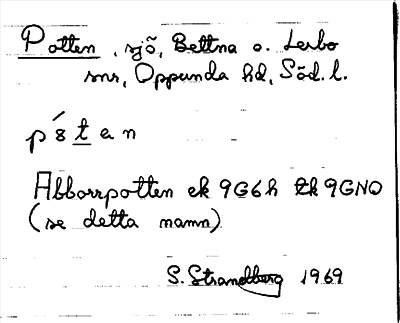 Potten, sjö, Bettna o. Lerbo
snr, Oppunda hd, Söd. l.
p 8́ t e n
Abborrpotten ek 9G6h 9GNO
(se detta namn)
S. Strandberg 1969